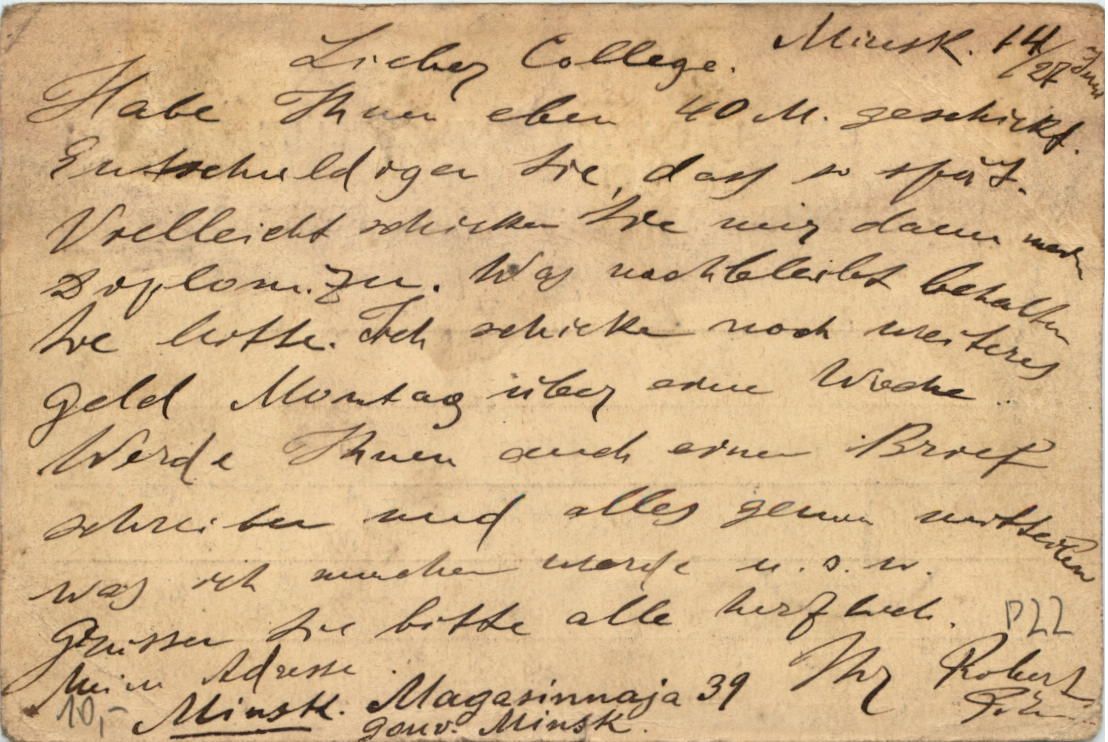 Minsk. 14/27 Juni
Lieber College.
Habe Ihnen eben 40 M. geschickt.
Entschuldigen Sie, dass so spät.
Vielleicht schicken Sie mir dann mein
Diplom. zu. Was nachbleibt behalten
Sie bitte. Ich schicke noch weiteres
Geld Montag über eine Woche
Werde Ihnen auch einen Brief
schreiben und alles genau mitteilen
was ich machen werde u. s. w.
Grüssen Sie bitte alle herzlich.
P22
Ihr Robert
Meine Adresse
10,-
Minsk. Magasinnaja 39
gouv. Minsk.